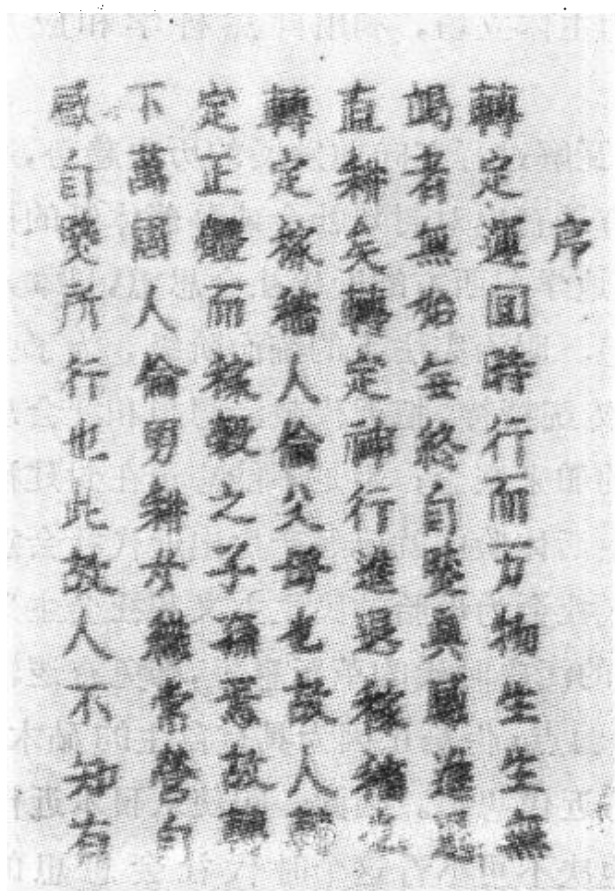 序
轉定運回時行而万物生生無
竭者無始每終自然真感進退
直耕矣轉定神行進退稼穡也
轉定稼穡人倫父母也故人轉
定正體而稼穀之子孫焉故轉
下萬國人倫男耕女織常營自
感自然所行也此故人不知有